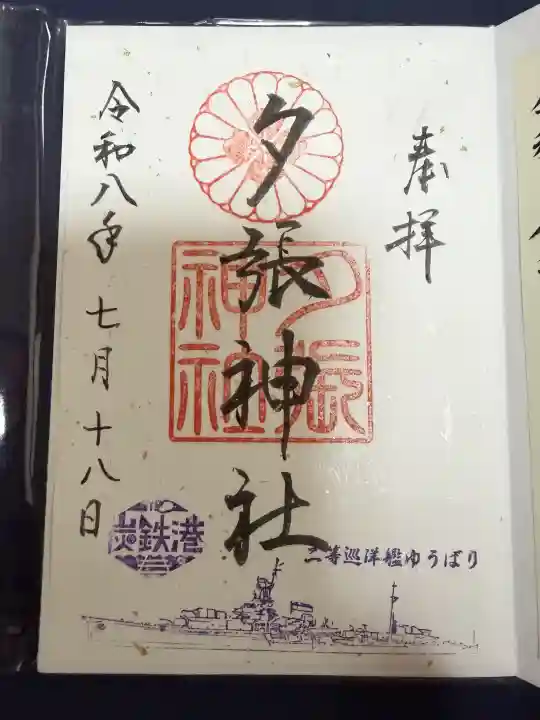 奉拝
夕張神社
夕張
神社
令和八年 七月十八日
炭鉄港
二等巡洋艦ゆうばり